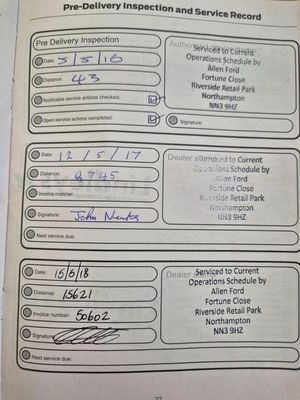 Pre-Delivery Inspection and Service Record
Pre Delivery Inspection
Date: 5/5/16
Distance: 43
Applicable service actions checked:
Open service actions completed:
Serviced to Current
Operations Schedule by
Allen Ford
Fortune Close
Riverside Retail Park
Northampton
NN3 9HZ
Signature:
Date: 12/5/17
Distance: 8745
Invoice number:
Signature: John
Next service due:
Dealer stamped to Current
Operations Schedule by
Allen Ford
Fortune Close
Riverside Retail Park
Northampton
NN3 9HZ
Date: 15/5/18
Distance: 15621
Invoice number: 50602
Signature:
Next service due:
Dealer Serviced to Current
Operations Schedule by
Allen Ford
Fortune Close
Riverside Retail Park
Northampton
NN3 9HZ